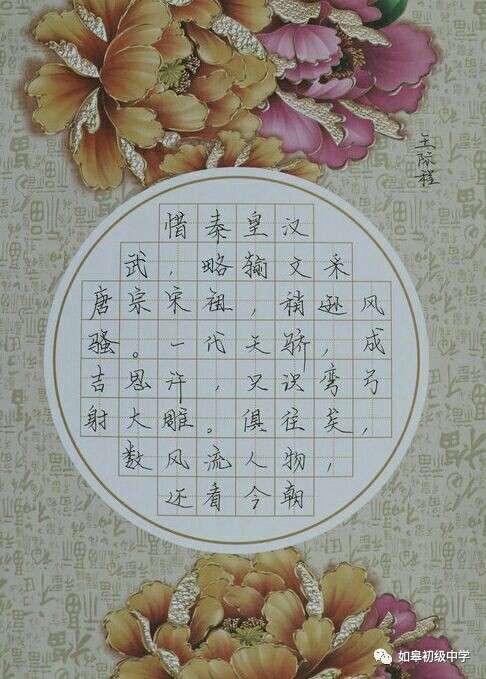 王际程
惜秦皇汉
武，略输文采
唐宗宋祖，稍逊风
骚。一代天骄，成
吉思汗，只识弯弓
射大雕。俱往矣，
数风流人物，
还看今朝
如皋初级中学